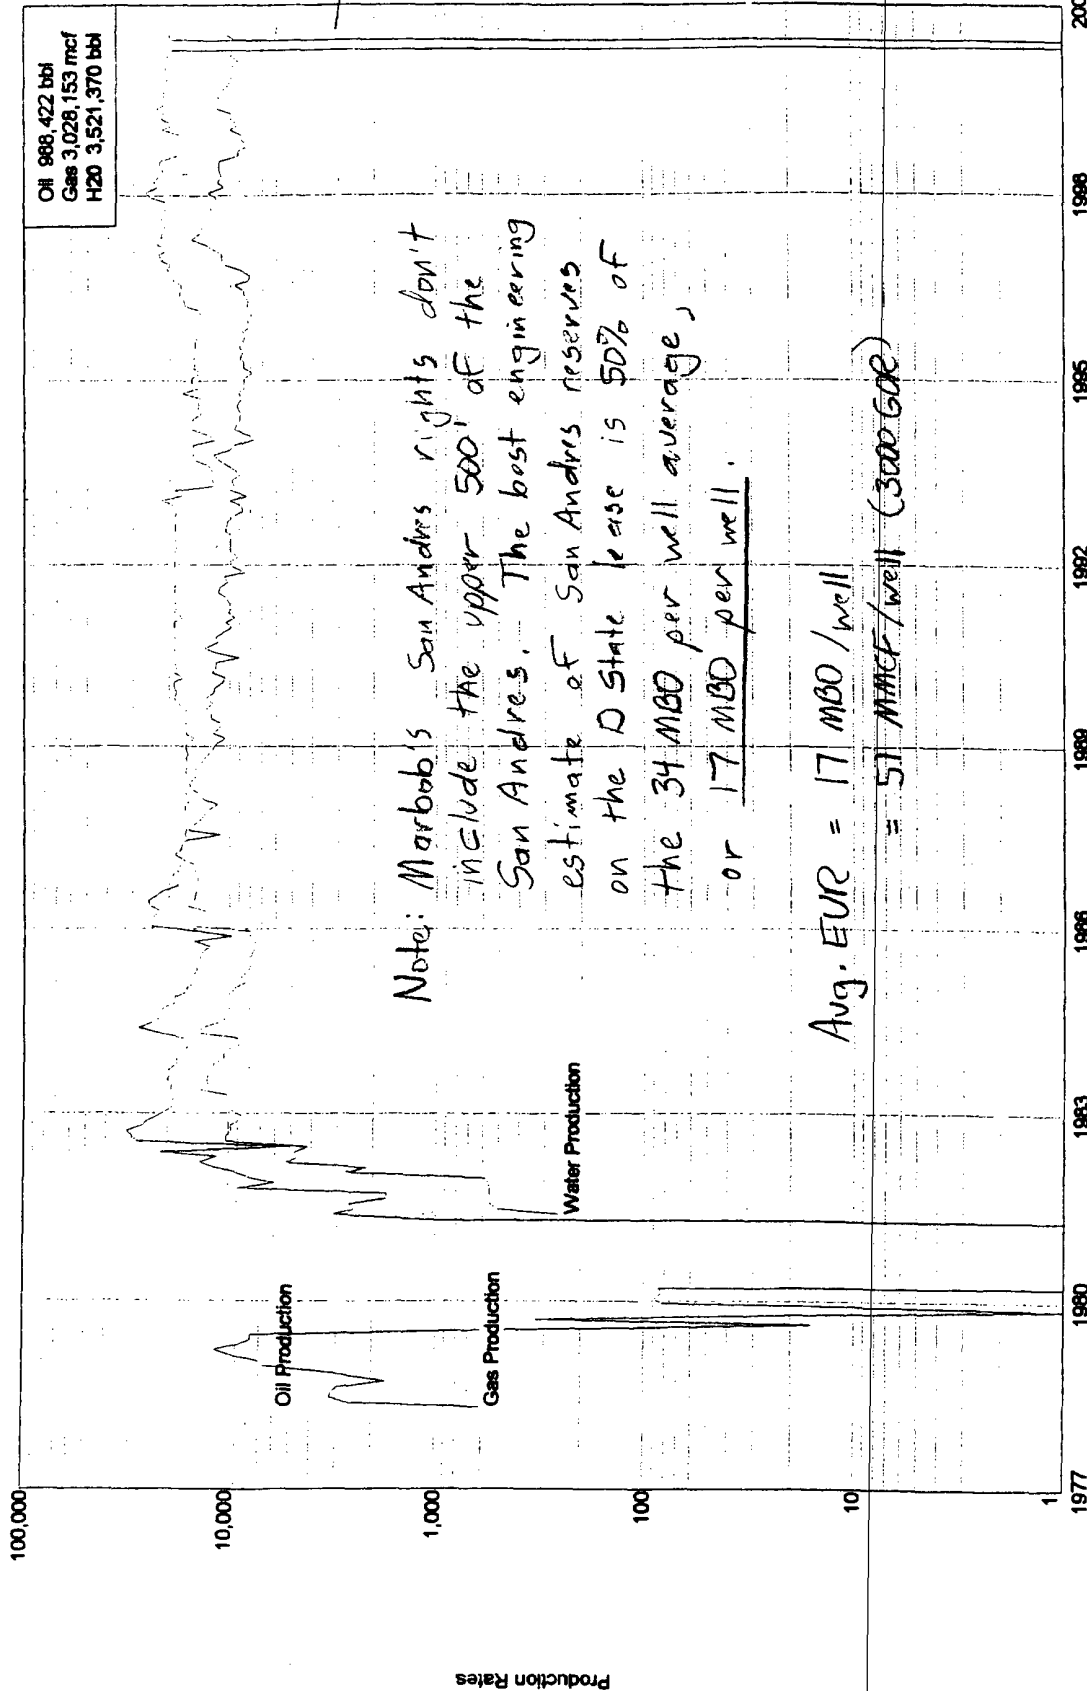 Oil 988,422 bbl
Gas 3,028,153 mcf
H20 3,521,370 bbl
100,000
10,000
1,000
100
10
1
Production Rates
Oil Production
Gas Production
Water Production
Note: Marbob's San Andres rights don't
include the upper 500' of the
San Andres. The best engineering
estimate of San Andres reserves
on the D State lease is 50% of
the 34 MBO per well average,
or 17 MBO per well.
Avg. EUR = 17 MBO/well
= 51 MMCF/well (3000 GOR)
1977
1980
1983
1986
1989
1992
1995
1998